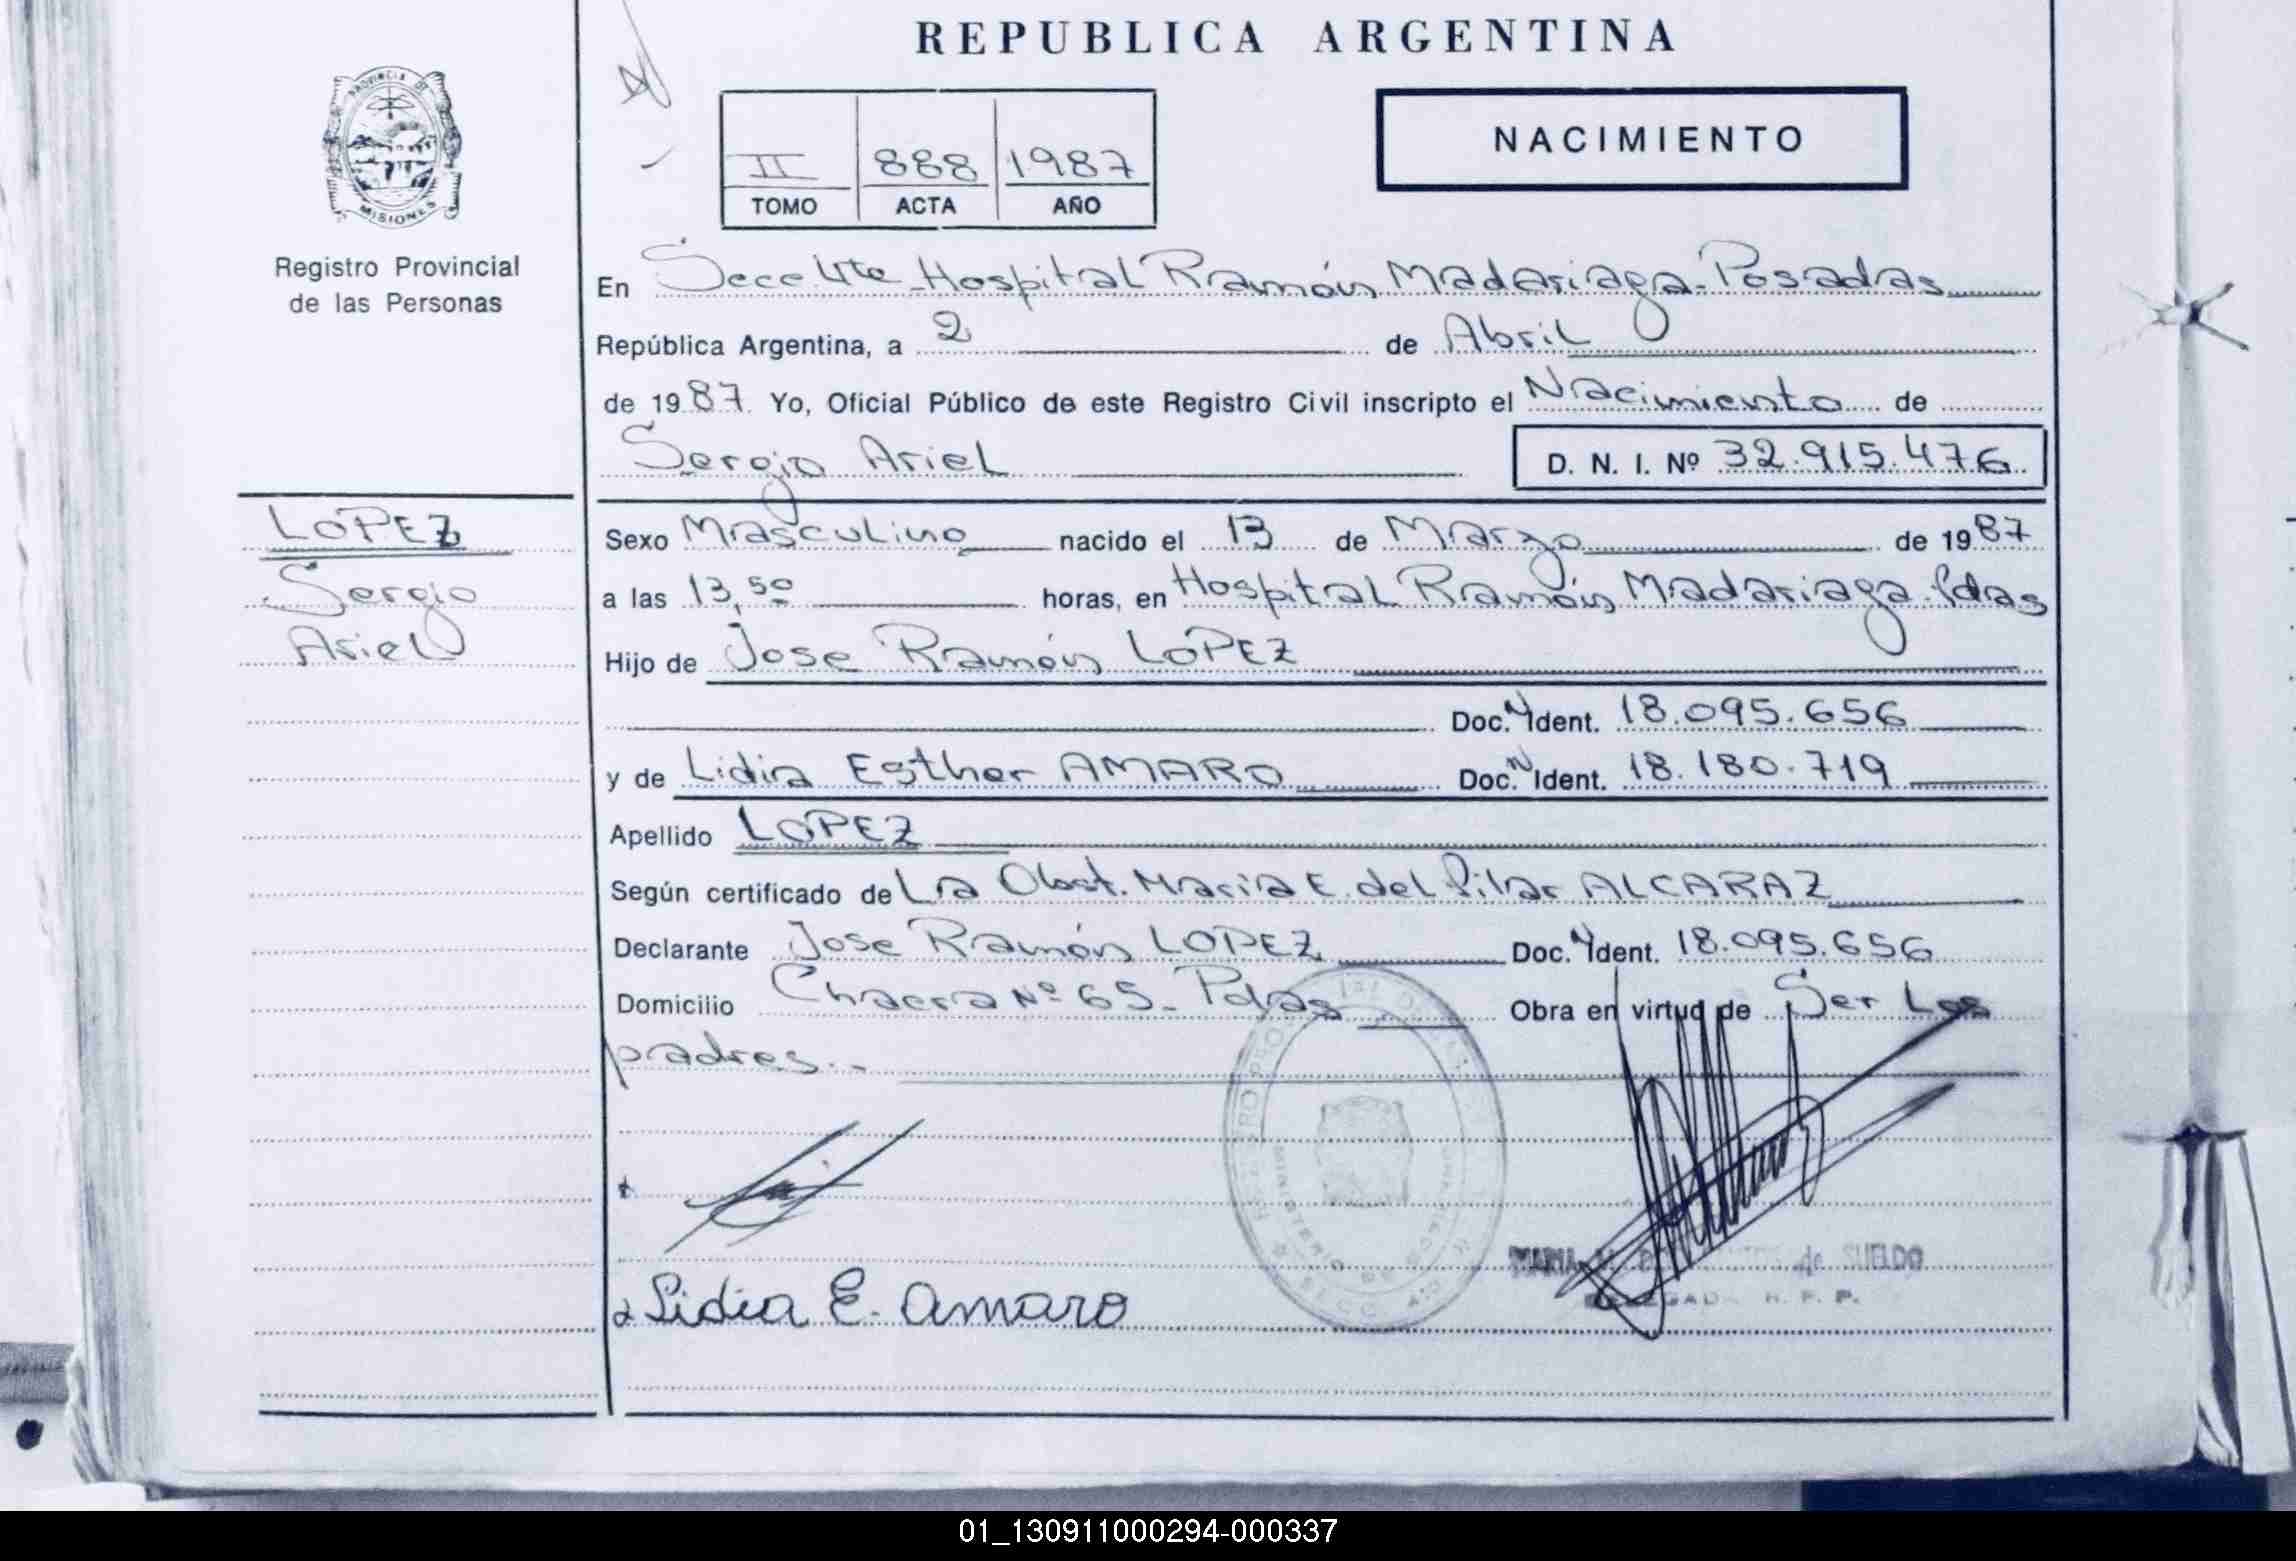 REPUBLICA ARGENTINA
PROVINCIA DE
MISIONES
Registro Provincial
de las Personas
II 888 1987
TOMO ACTA AÑO
NACIMIENTO
En Secc. 4ta Hospital Ramón Madariaga-Posadas
República Argentina, a 2 de Abril
de 1987 Yo, Oficial Público de este Registro Civil inscripto el Nacimiento de
Sergio Ariel D. N. I. Nº 32.915.476
LOPEZ
Sergio
Ariel
Sexo Masculino nacido el 13 de Marzo de 1987
a las 13,50 horas, en Hospital Ramón Madariaga-Pdas
Hijo de Jose Ramón LOPEZ
Doc. N Ident. 18.095.656
y de Lidia Esther AMARO Doc. N Ident. 18.180.719
Apellido LOPEZ
Según certificado de La Obst. Maria E. del Pilar ALCARAZ
Declarante Jose Ramón LOPEZ Doc. N Ident. 18.095.656
Domicilio Chacra Nº 65- Pdas Obra en virtud de Ser Los
padres.-
MINISTERIO DE
MARIA de SUELDO
R. P. P.
Lidia E. Amaro
01_130911000294-000337